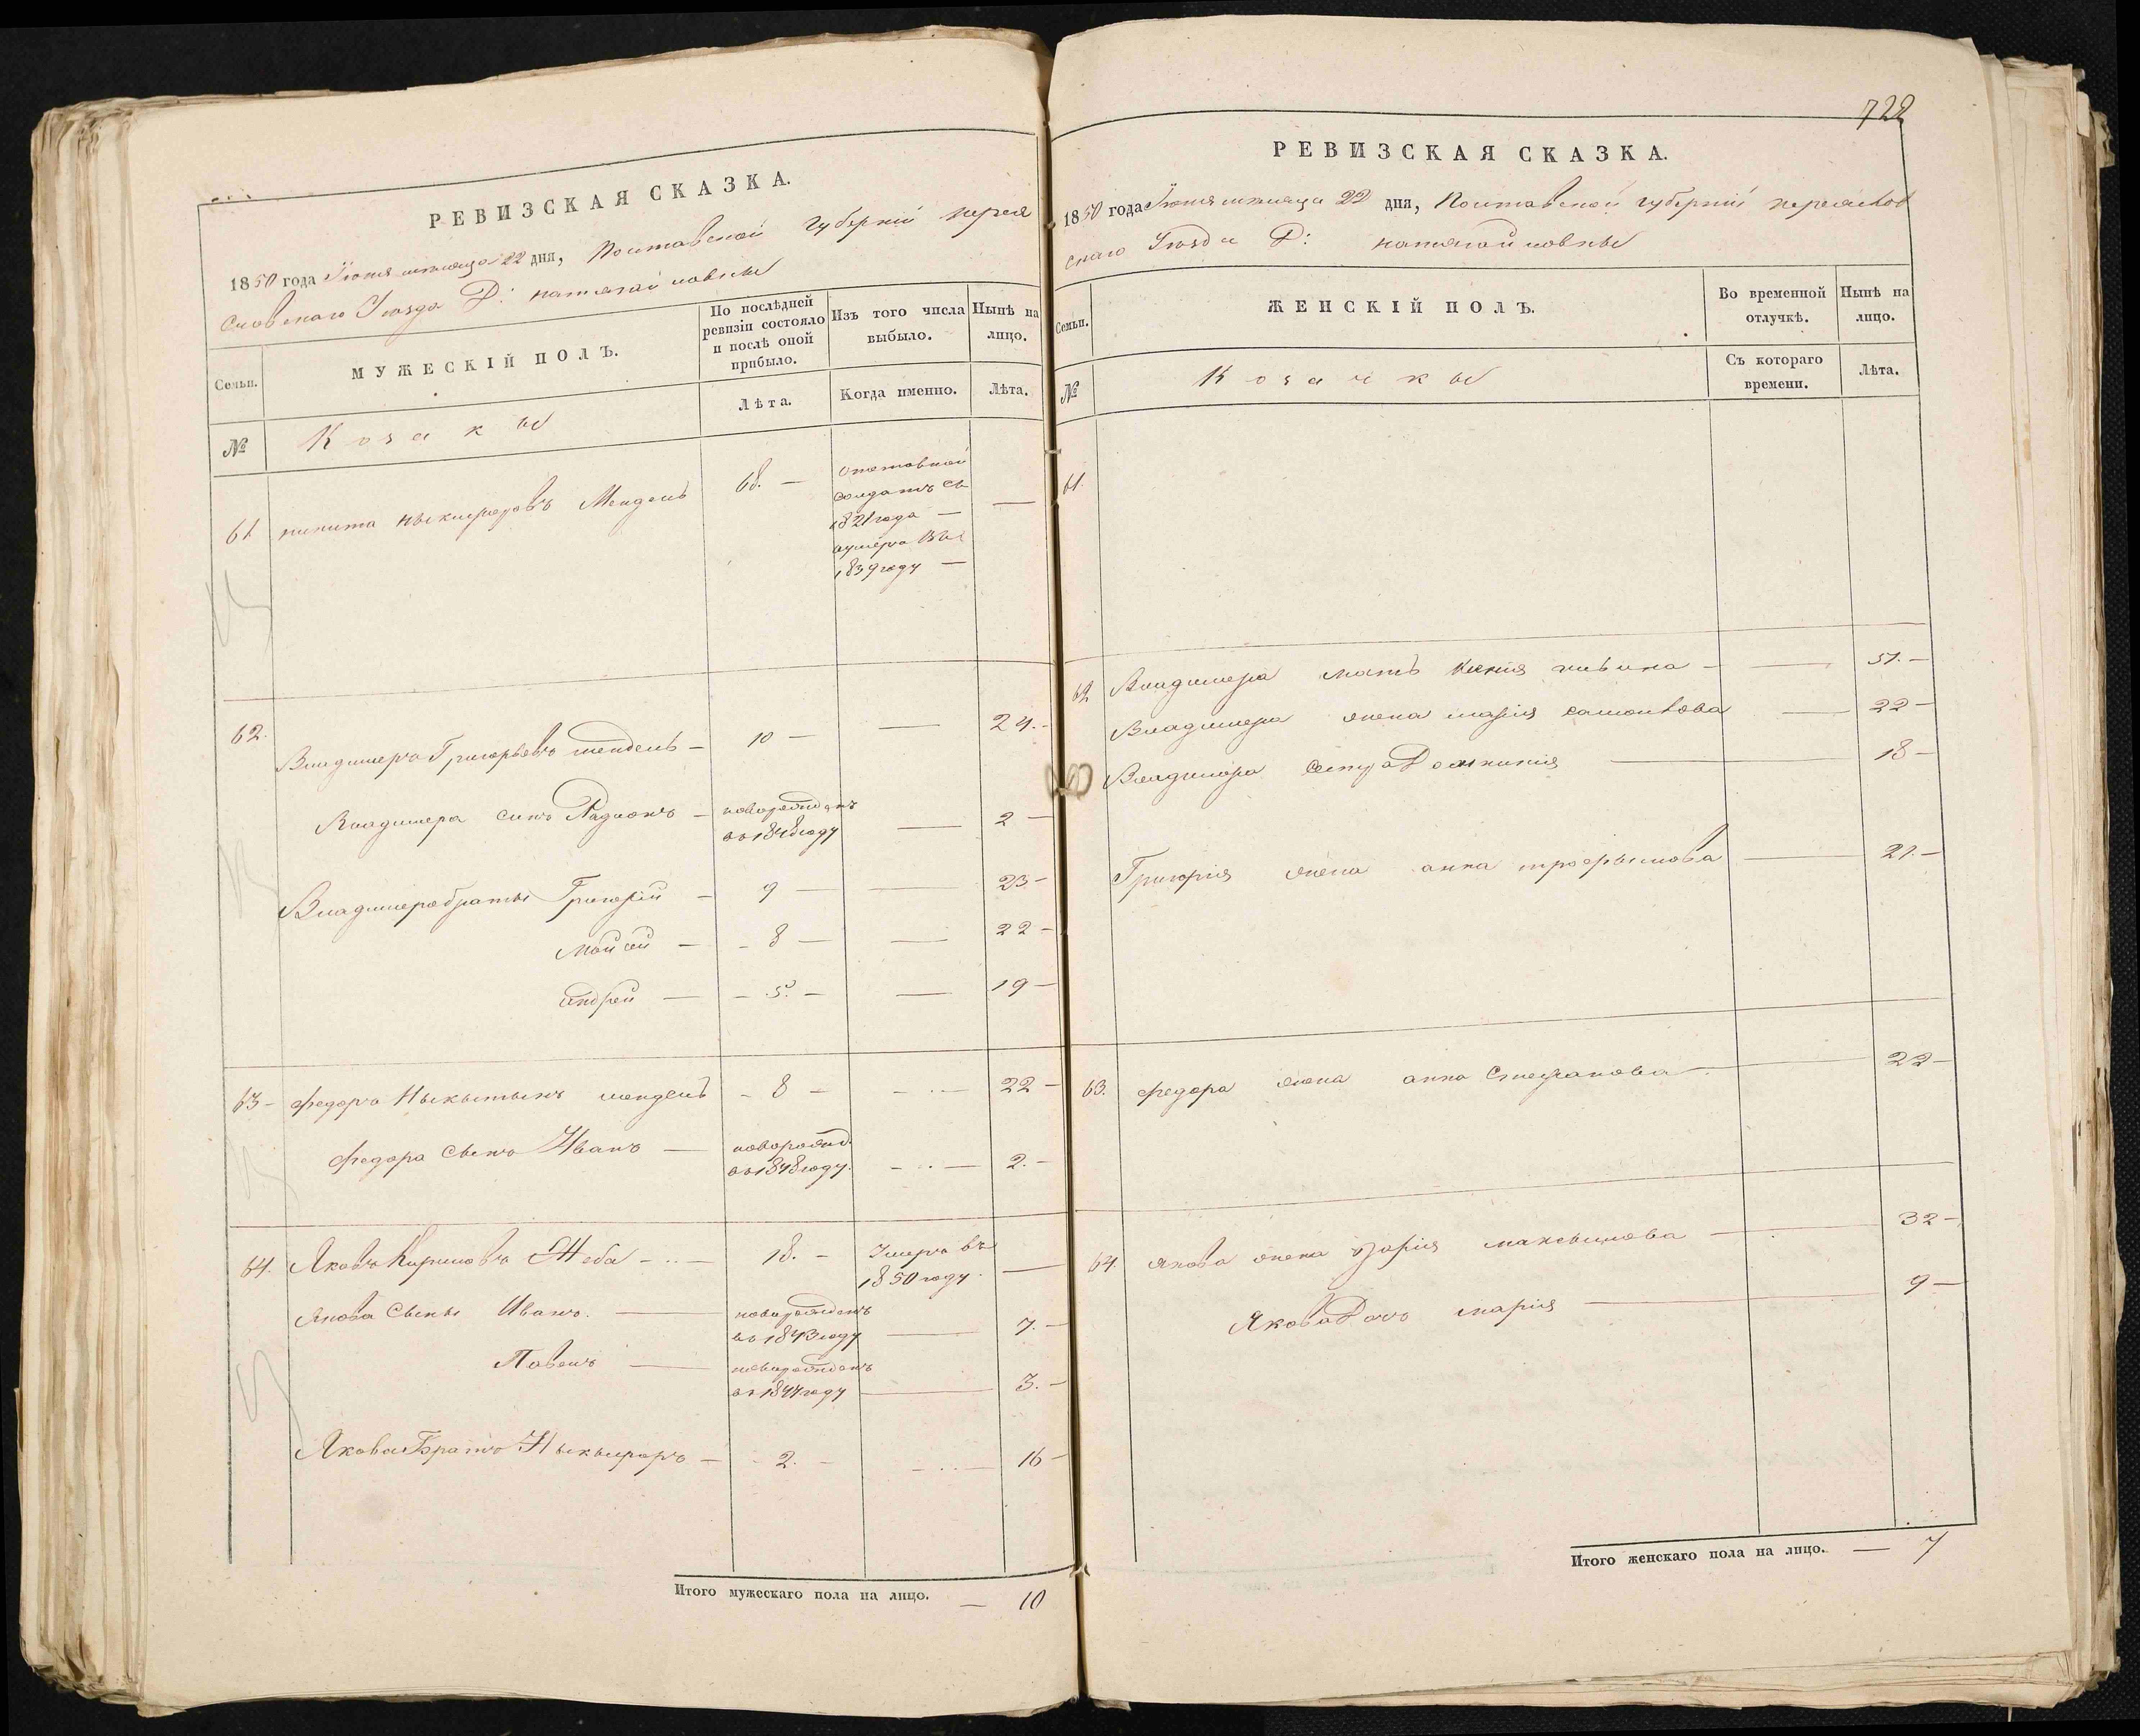 РЕВИЗСКАЯ СКАЗКА.
1850 года Іюня мѣсяца 22 дня, Полтавской губерніи перея
словскаго Уезда Д:
Семьи.
МУЖЕСКІЙ ПОЛЪ.
По послѣдней ревизіи состояло и послѣ оной прибыло.
Изъ того числа выбыло.
Нынѣ на лицо.
№
Козакы
Лѣта.
Когда именно.
Лѣта.
61. никита ныкифоровъ Мендель 68. —
солдатъ съ
1821 года —
умеръ въ
1839 году —
62. Владимеръ Григорьевъ мендель — 10 — — 24. —
Владимера синъ Радионъ — новорожденъ
въ 1848 году — 2 —
Владимера братьи Григорій — 9 — — 23 —
Мойсей — 8 — — 22 —
андрей — 5. — — 19 —
63 — федоръ Ныкытынъ мендель — 8 — — 22 —
федора сынъ Иванъ — новорожд.
въ 1848 году. — 2. —
64. Яковъ Кириловъ Жеба — 18. — Умеръ въ
1850 году. —
Якова сыны Иванъ. — новорожденъ
въ 1843 году — 7. —
Павелъ — новорожденъ
въ 1847 году — 3. —
Якова Братъ Ныкыфоръ — 2. — — 16 —
Итого мужескаго пола на лицо. — 10
722
РЕВИЗСКАЯ СКАЗКА.
1850 года Іюня мѣсяца 22 дня, Полтавской губерніи переяслов
скаго Уезда Д:
Семьи.
ЖЕНСКІЙ ПОЛЪ.
Во временной отлучкѣ.
Нынѣ на лицо.
№
Козачкы
Съ котораго времени.
Лѣта.
61.
62 Владимера мать — 51. —
Владимера жена марія самойлова — 22 —
Владимера сестра Домникия — 18 —
Григорія жена анна трофымова — 21. —
63. федора жена анна Стефанова — 22 —
64. якова жена максымова — 32 —
Якова Дочь марія — 9 —
Итого женскаго пола на лицо. — 7